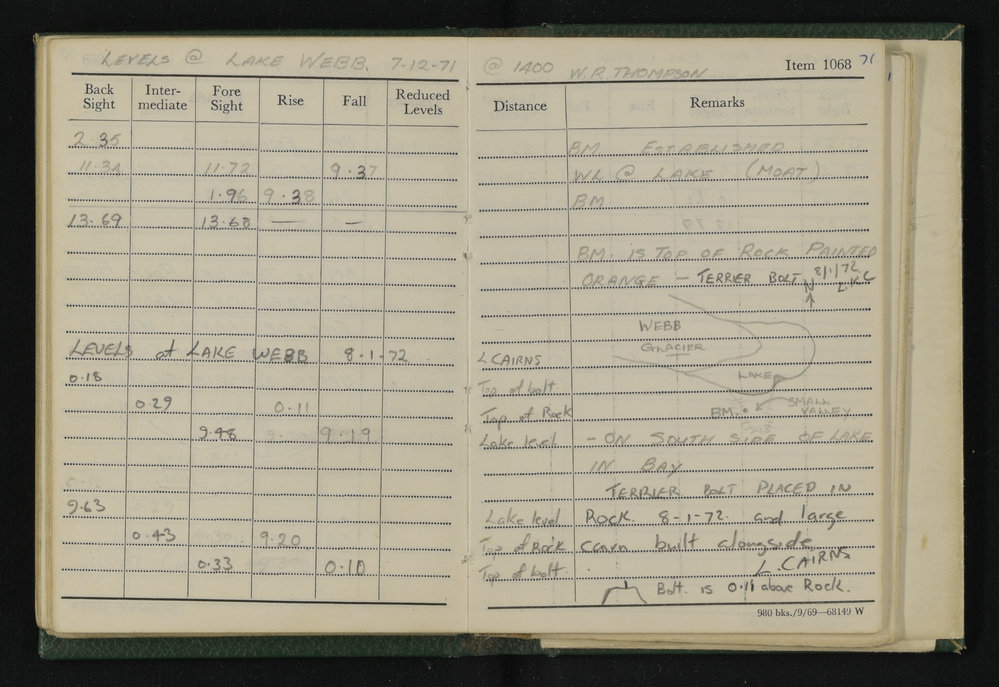 LEVELS @ LAKE WEBB. 7-12-71 @ 1400 W.R. THOMPSON Item 1068 71
Back Sight Inter-mediate Fore Sight Rise Fall Reduced Levels Distance Remarks
2.35 BM ESTABLISHED
11.34 11.72 9.37 WL @ LAKE (MOAT)
1.96 9.38 BM
13.69 13.68 — —
BM. IS TOP OF ROCK PAINTED
ORANGE — TERRIER BOLT 8/1/72. L.K.C
N
WEBB
GLACIER
LEVELS at LAKE WEBB 8-1-72 L CAIRNS
0.18 Top of bolt. LAKE
0.29 0.11 Top of Rock BM. SMALL VALLEY
9.48 9.19 Lake level - ON SOUTH SIDE OF LAKE
IN BAY
TERRIER BOLT PLACED IN
9.63 Lake level Rock. 8-1-72. and large
0.43 9.20 Top of Rock cairn built alongside
0.33 0.10 Top of bolt. L. CAIRNS
Bolt. is 0.11 above Rock.
980 bks./9/69—68149 W